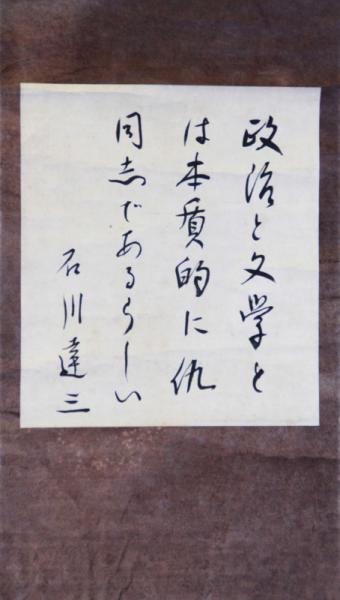 政治と文學と
は本質的に仇
同志であるらしい
石川達三